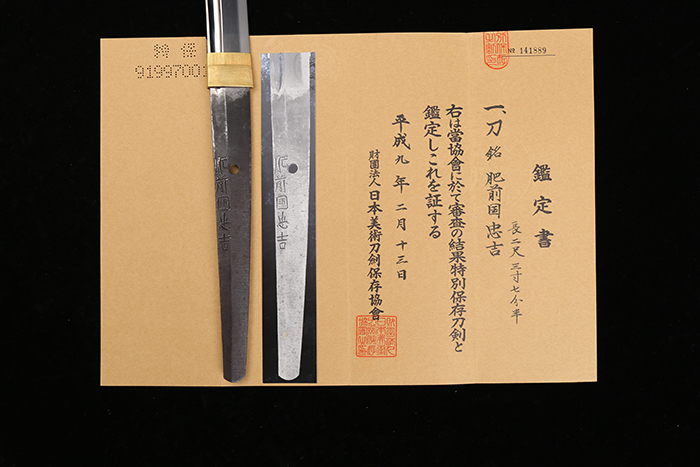 鑑定書
一、刀 銘 肥前国忠吉
長二尺三寸七分半
右は當協會に於て審査の結果特別保存刀劍と
鑑定しこれを証する
平成九年二月十三日
財團法人 日本美術刀劍保存協會
№ 141889
特保
9199700
肥前國忠吉
肥前國忠吉